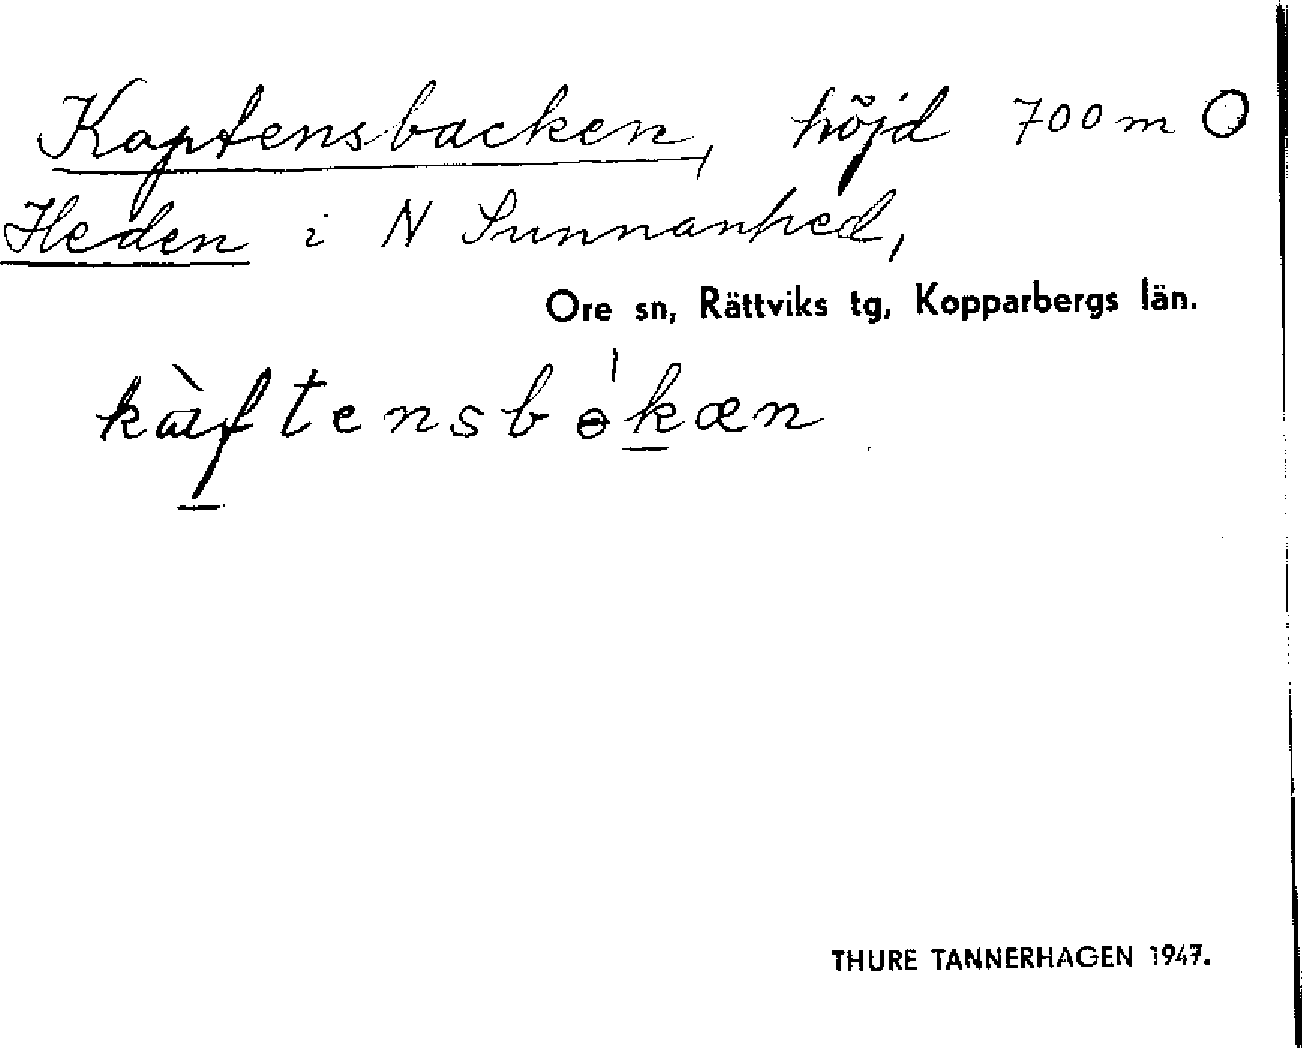 Kaptensbacken, höjd 700 m O
Heden i N Sunnanhed,
Ore sn, Rättviks tg, Kopparbergs län.
THURE TANNERHAGEN 1947.